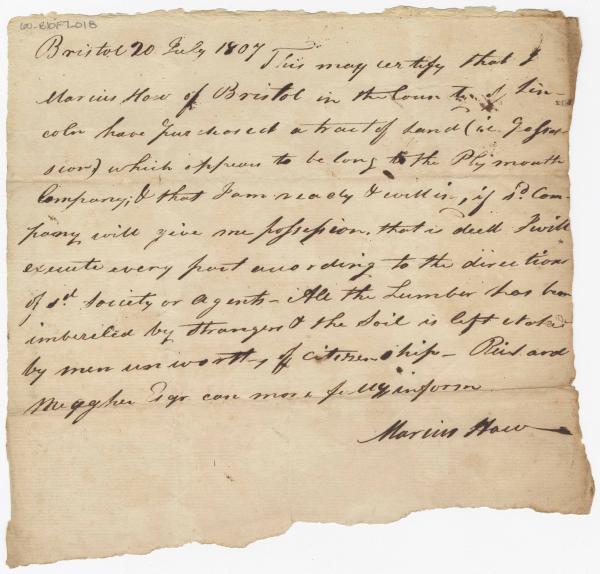 60-B10F7-01B
Bristol 20 July 1807
This may certify that I
Marcius How of Bristol in the County of Lin-
coln have purchased a tract of Land (ie Posses-
sion) which appears to be long to the Plymouth
Company; & that I am ready & willin, if sd. Com-
pany will give me possession, that is deed I will
execute every part according to the directions
of sd society or agents - All the Lumber has been
imbereled by strangers & the Soil is left
by men unworthy of citizenship - Richard
Meagher Esqr can more fully inform
Marcius How